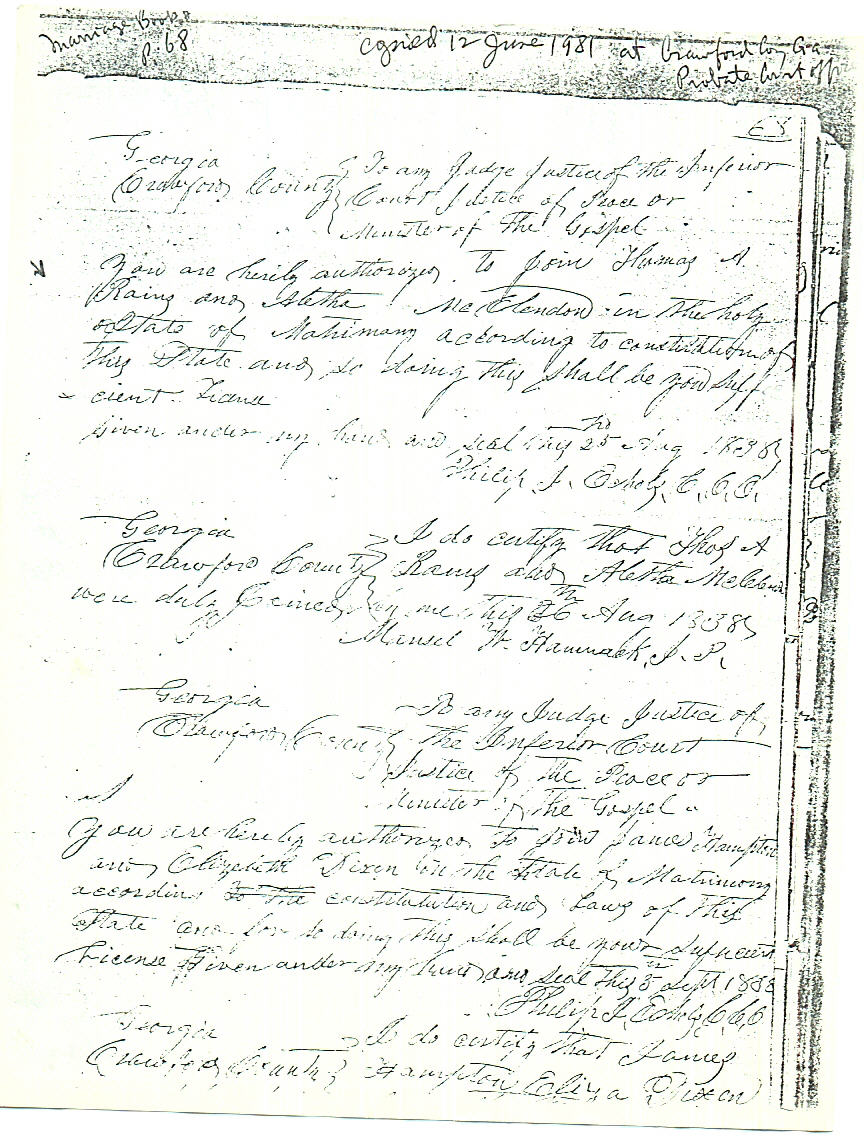 Marriage Book
p. 68
copied 12 June 1981 at Crawford Co, Ga
Probate Court off
68
Georgia
Crawford County
To any Judge Justice of the Inferior
Court Justice of Peace or
Minister of The Gospel
You are herily authorized to join Thomas A
Rains and Aletha McClendon in the holy
State of Matrimony according to constitution of
this State and so doing this shall be you suff
cient
Given under my hand and seal this 25 Aug 1838
Philip J. Echols, C.C.O.
Georgia
Crawford County
I do certify that Thos A
Rains and Aletha McClen
were duly Joined by me this 26 Aug 1838
Mansel W. Hammack, J. P.
Georgia
Crawford County
To any Judge Justice of
the Inferior Court
Justice of the Peace or
Minister of the Gospel
You are hereby authorized to join James Hampton
and Elizabeth Dixon in the State of Matrimony
according to the constitution and Laws of this
State and for so doing this shall be your
License Given under my hand and seal this Sept 1838
Philip J. Echols, C.C.O
Georgia
Crawford County
I do certify that James
Hampton Eliza Dixon